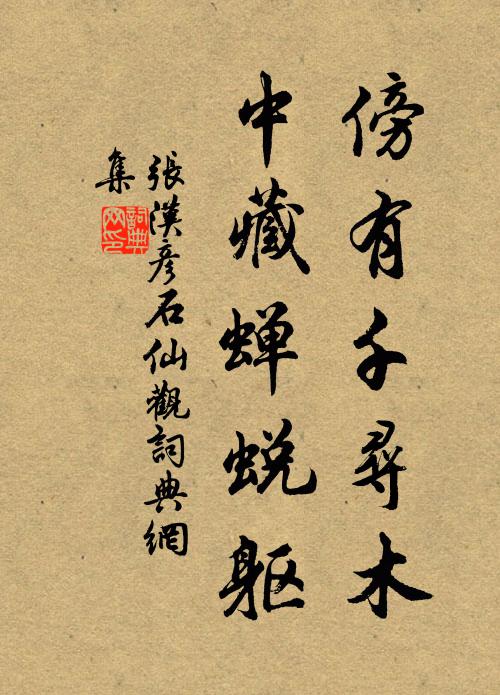 傍有千尋木
中藏蟬蛻軀
張漢彥石仙觀詞典網
集
詞典網印